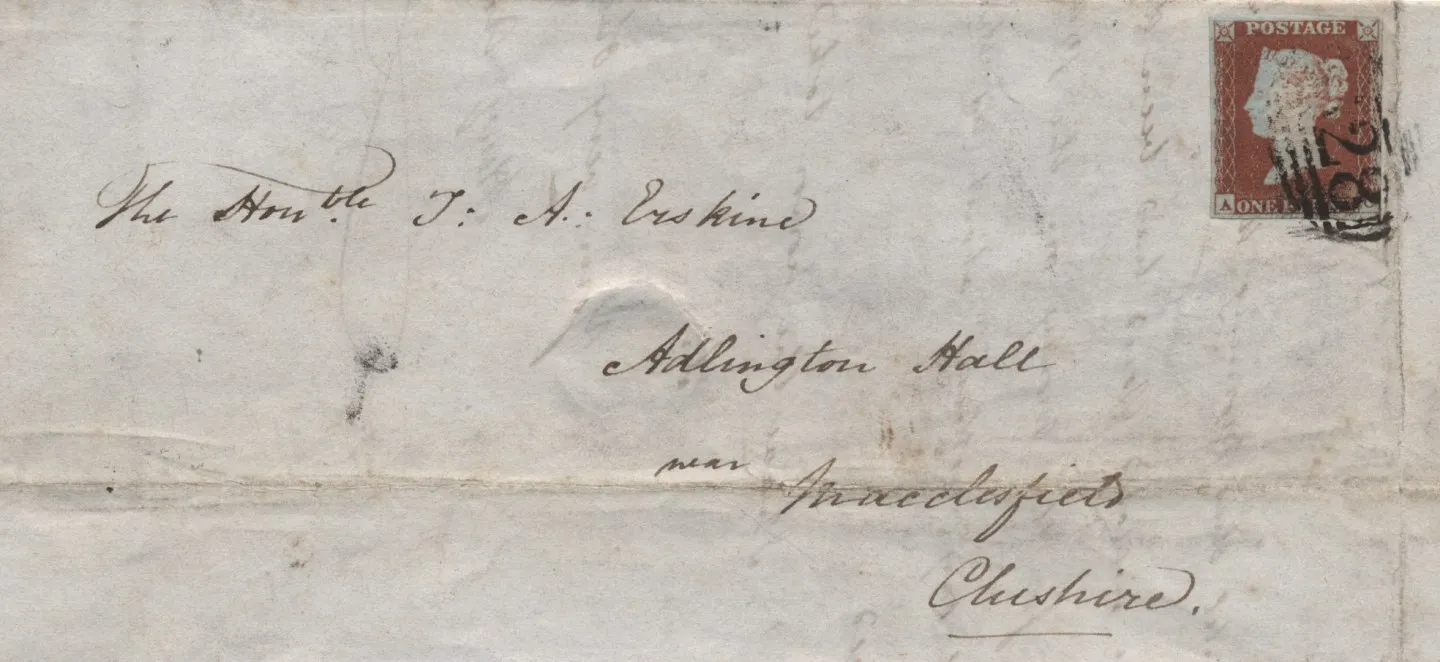 POSTAGE
A ONE
28
The Honble T: A: Erskine
Adlington Hall
near Macclesfield
Cheshire.